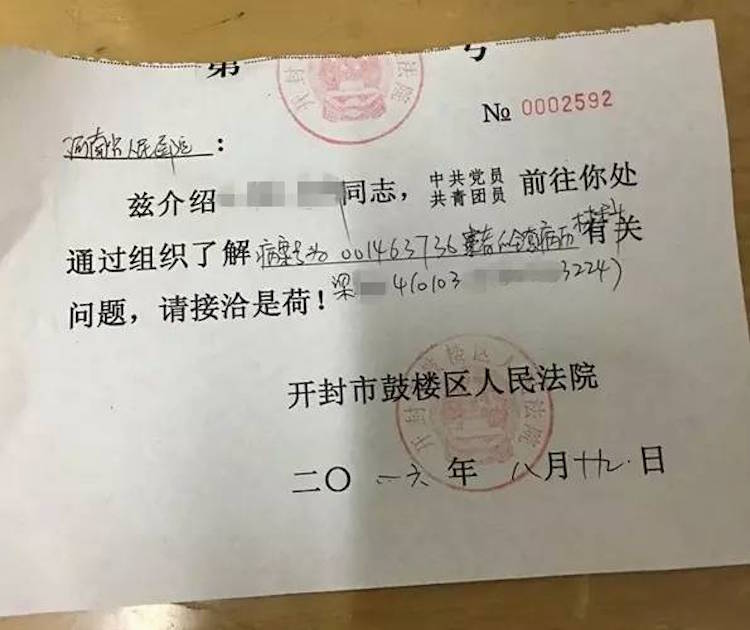 第 号
开封 法院
№ 0002592
河南省人民医院：
兹介绍 同志，中共党员 共青团员 前往你处
通过组织了解病案号为001463736患者的全套病历材料有关
问题，请接洽是荷！梁 410103 3224)
开封市鼓楼区人民法院
二〇一六年八月十九日